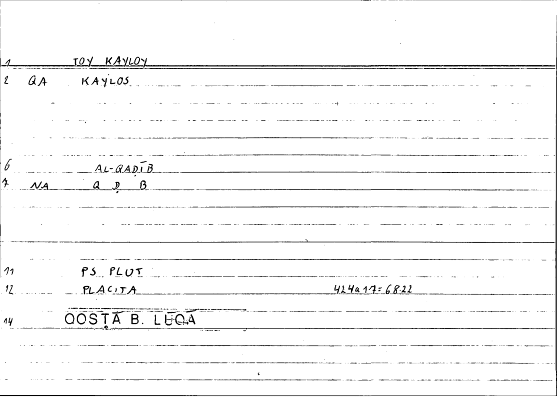 1 TOY KAYLOY
2 QA KAYLOS
6 AL-QAḌĪB
7 NA Q Ḍ B
11 PS PLUT
12 PLACITA 424a17=6822
14 QOSṬĀ B. LŪQĀ